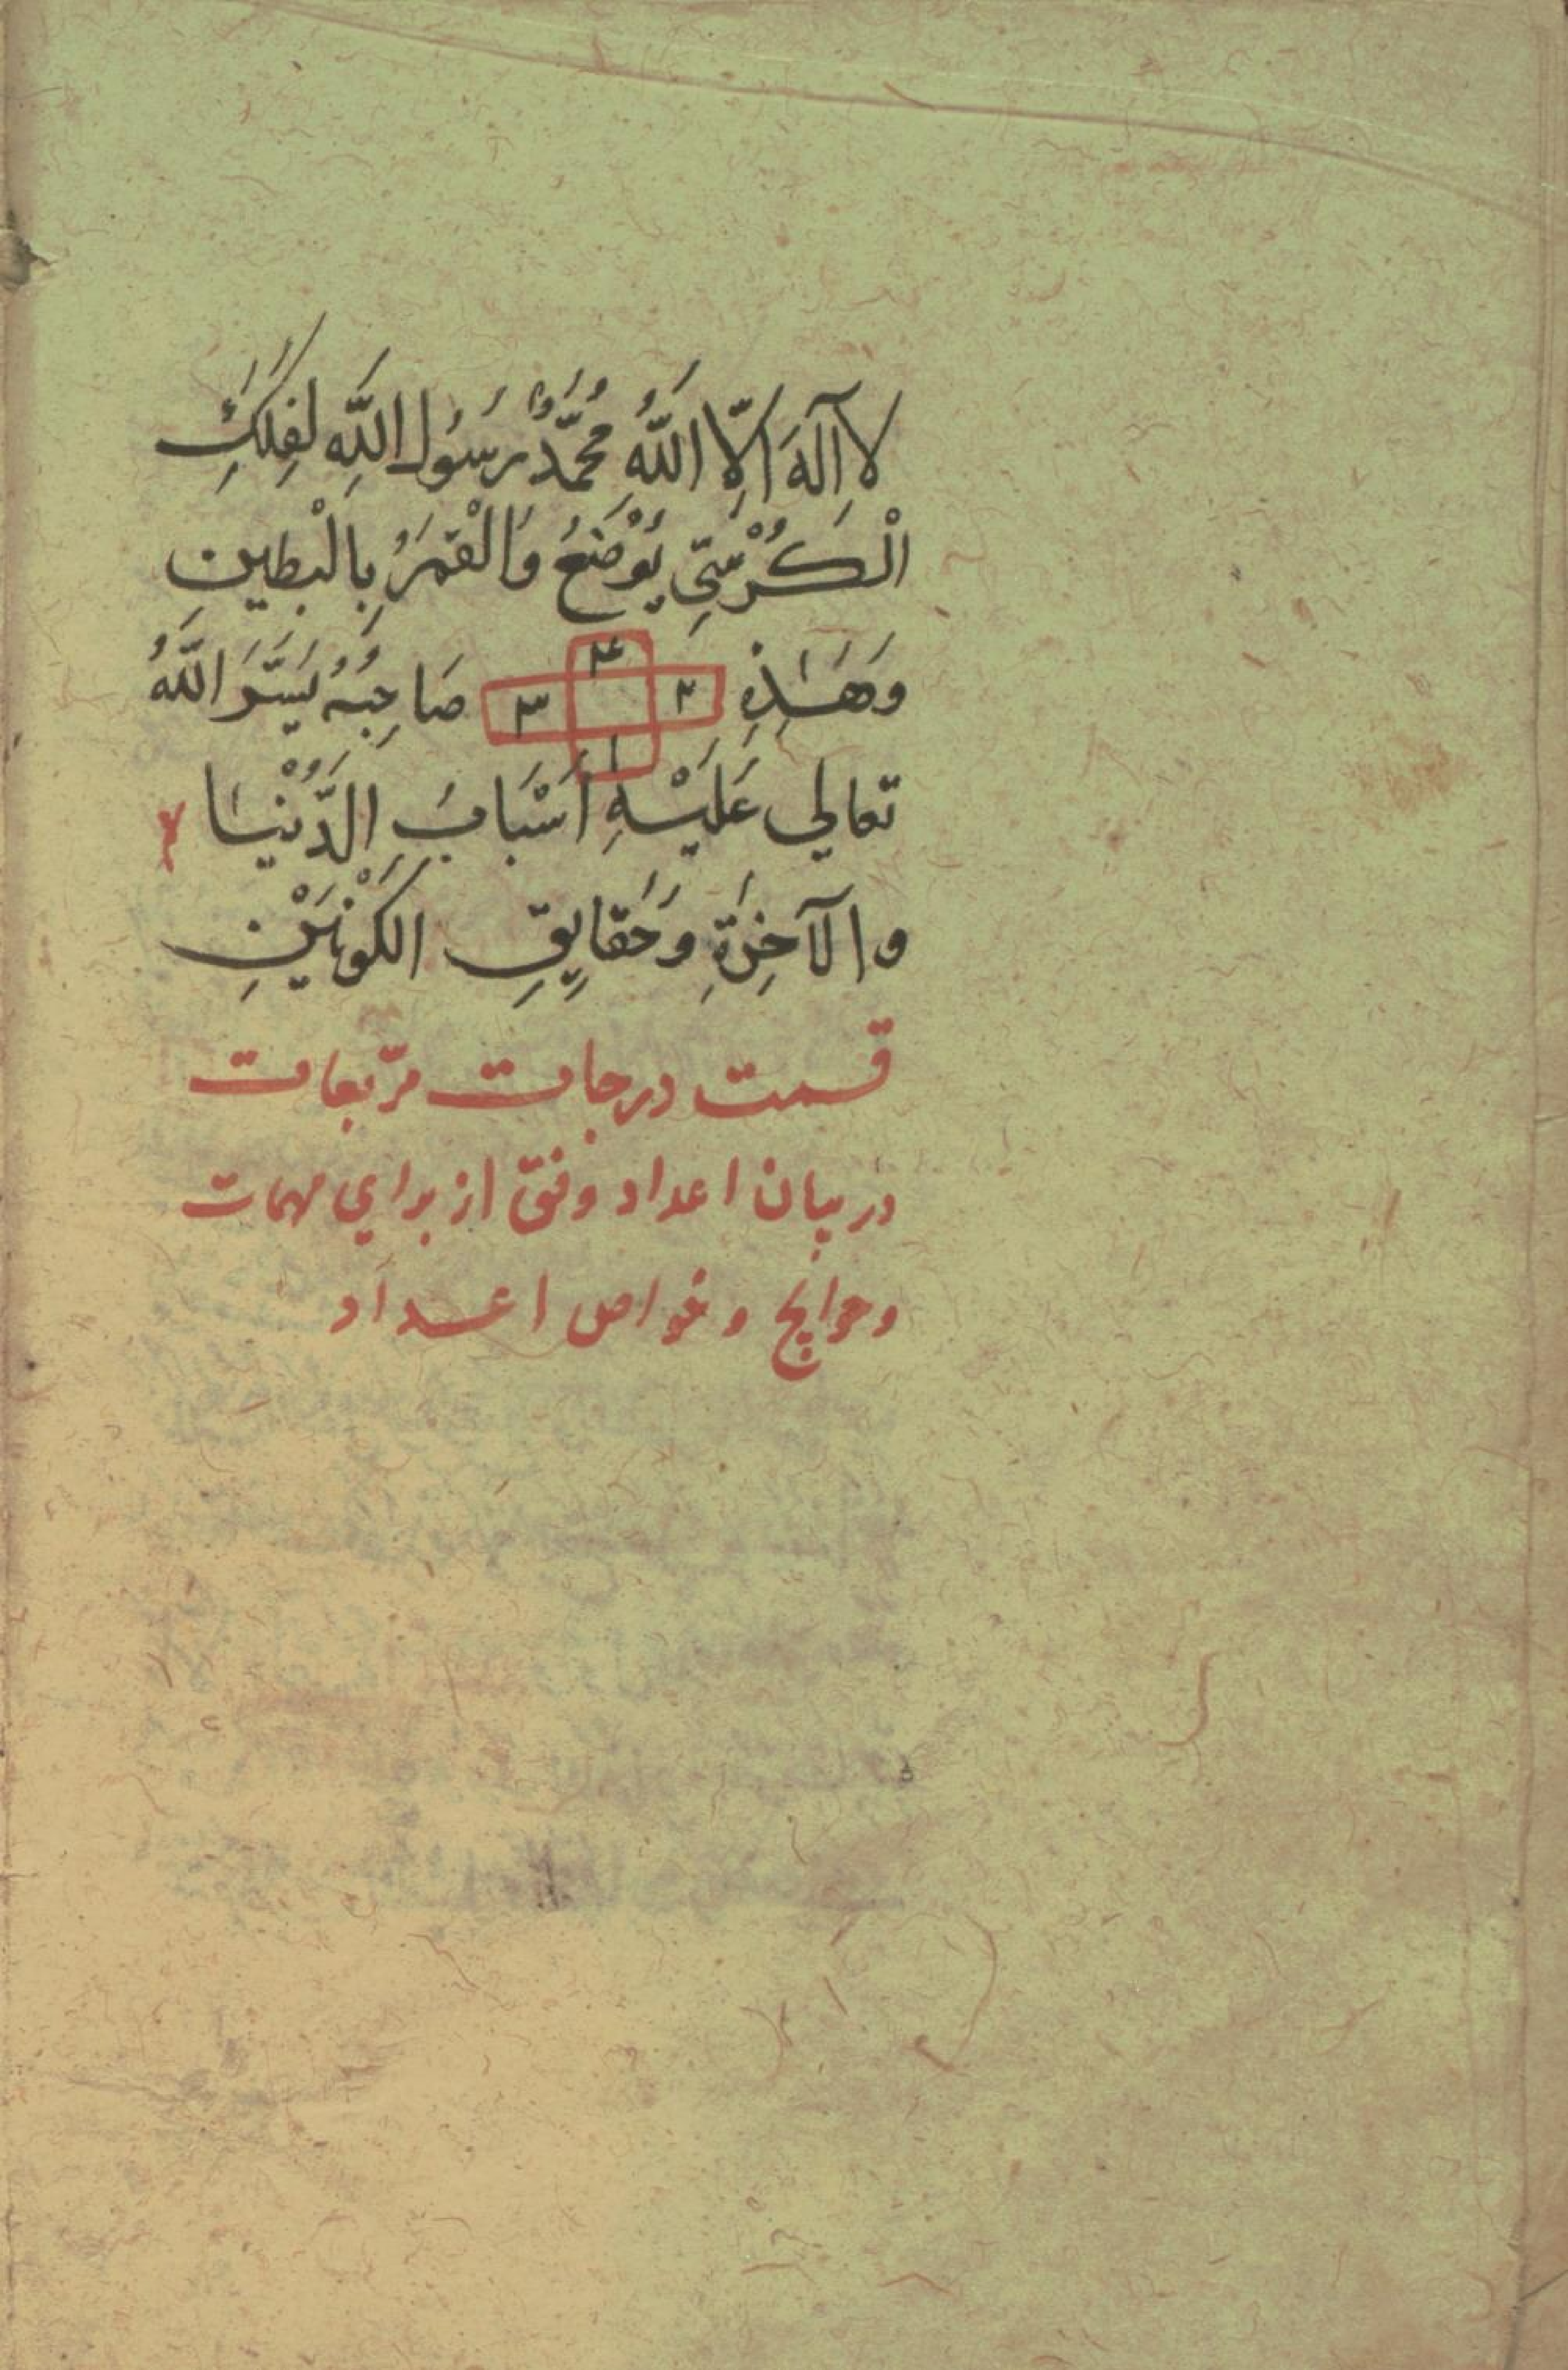 لَا اِلٰهَ اِلَّا اللّٰهُ مُحَمَّدٌ رَسُولُ اللّٰهِ لِفَلَكِ
الْكُرْسِيِّ يُوْضَعُ وَالْقَمَرُ بِالْبُطَيْنِ
وَهٰذِهِ ٢ ٤ ٣ ١ صَاحِبُهُ يَسَّرَ اللّٰهُ
تعالي عَلَيْهِ اَسْبَابَ الدُّنْيَا
والآخِرَةِ وَحَقايِقِ الكَوْنَيْنِ
قسمت درجات مربّعات
در بيان اعداد وفق از براي مهمات
وحوايج وخواص اعداد